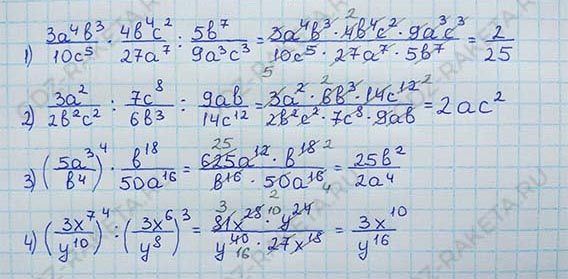 1) 3a⁴b³/10c⁵ · 4b⁴c²/27a⁷ : 5b⁷/9a³c³ = 3a⁴b³ · 4b⁴c² · 9a³c³/10c⁵ · 27a⁷ · 5b⁷ = 2/25
2) 3a²/2b²c² : 7c⁸/6b³ : 9ab/14c¹² = 3a² · 6b³ · 14c¹²/2b²c² · 7c⁸ · 9ab = 2ac²
3) (5a³/b⁴)⁴ · b¹⁸/50a¹⁶ = 625a¹² · b¹⁸/b¹⁶ · 50a¹⁶ = 25b²/2a⁴
4) (3x⁷/y¹⁰)⁴ : (3x⁶/y⁸)³ = 81x²⁸ · y²⁴/y⁴⁰ · 27x¹⁸ = 3x¹⁰/y¹⁶